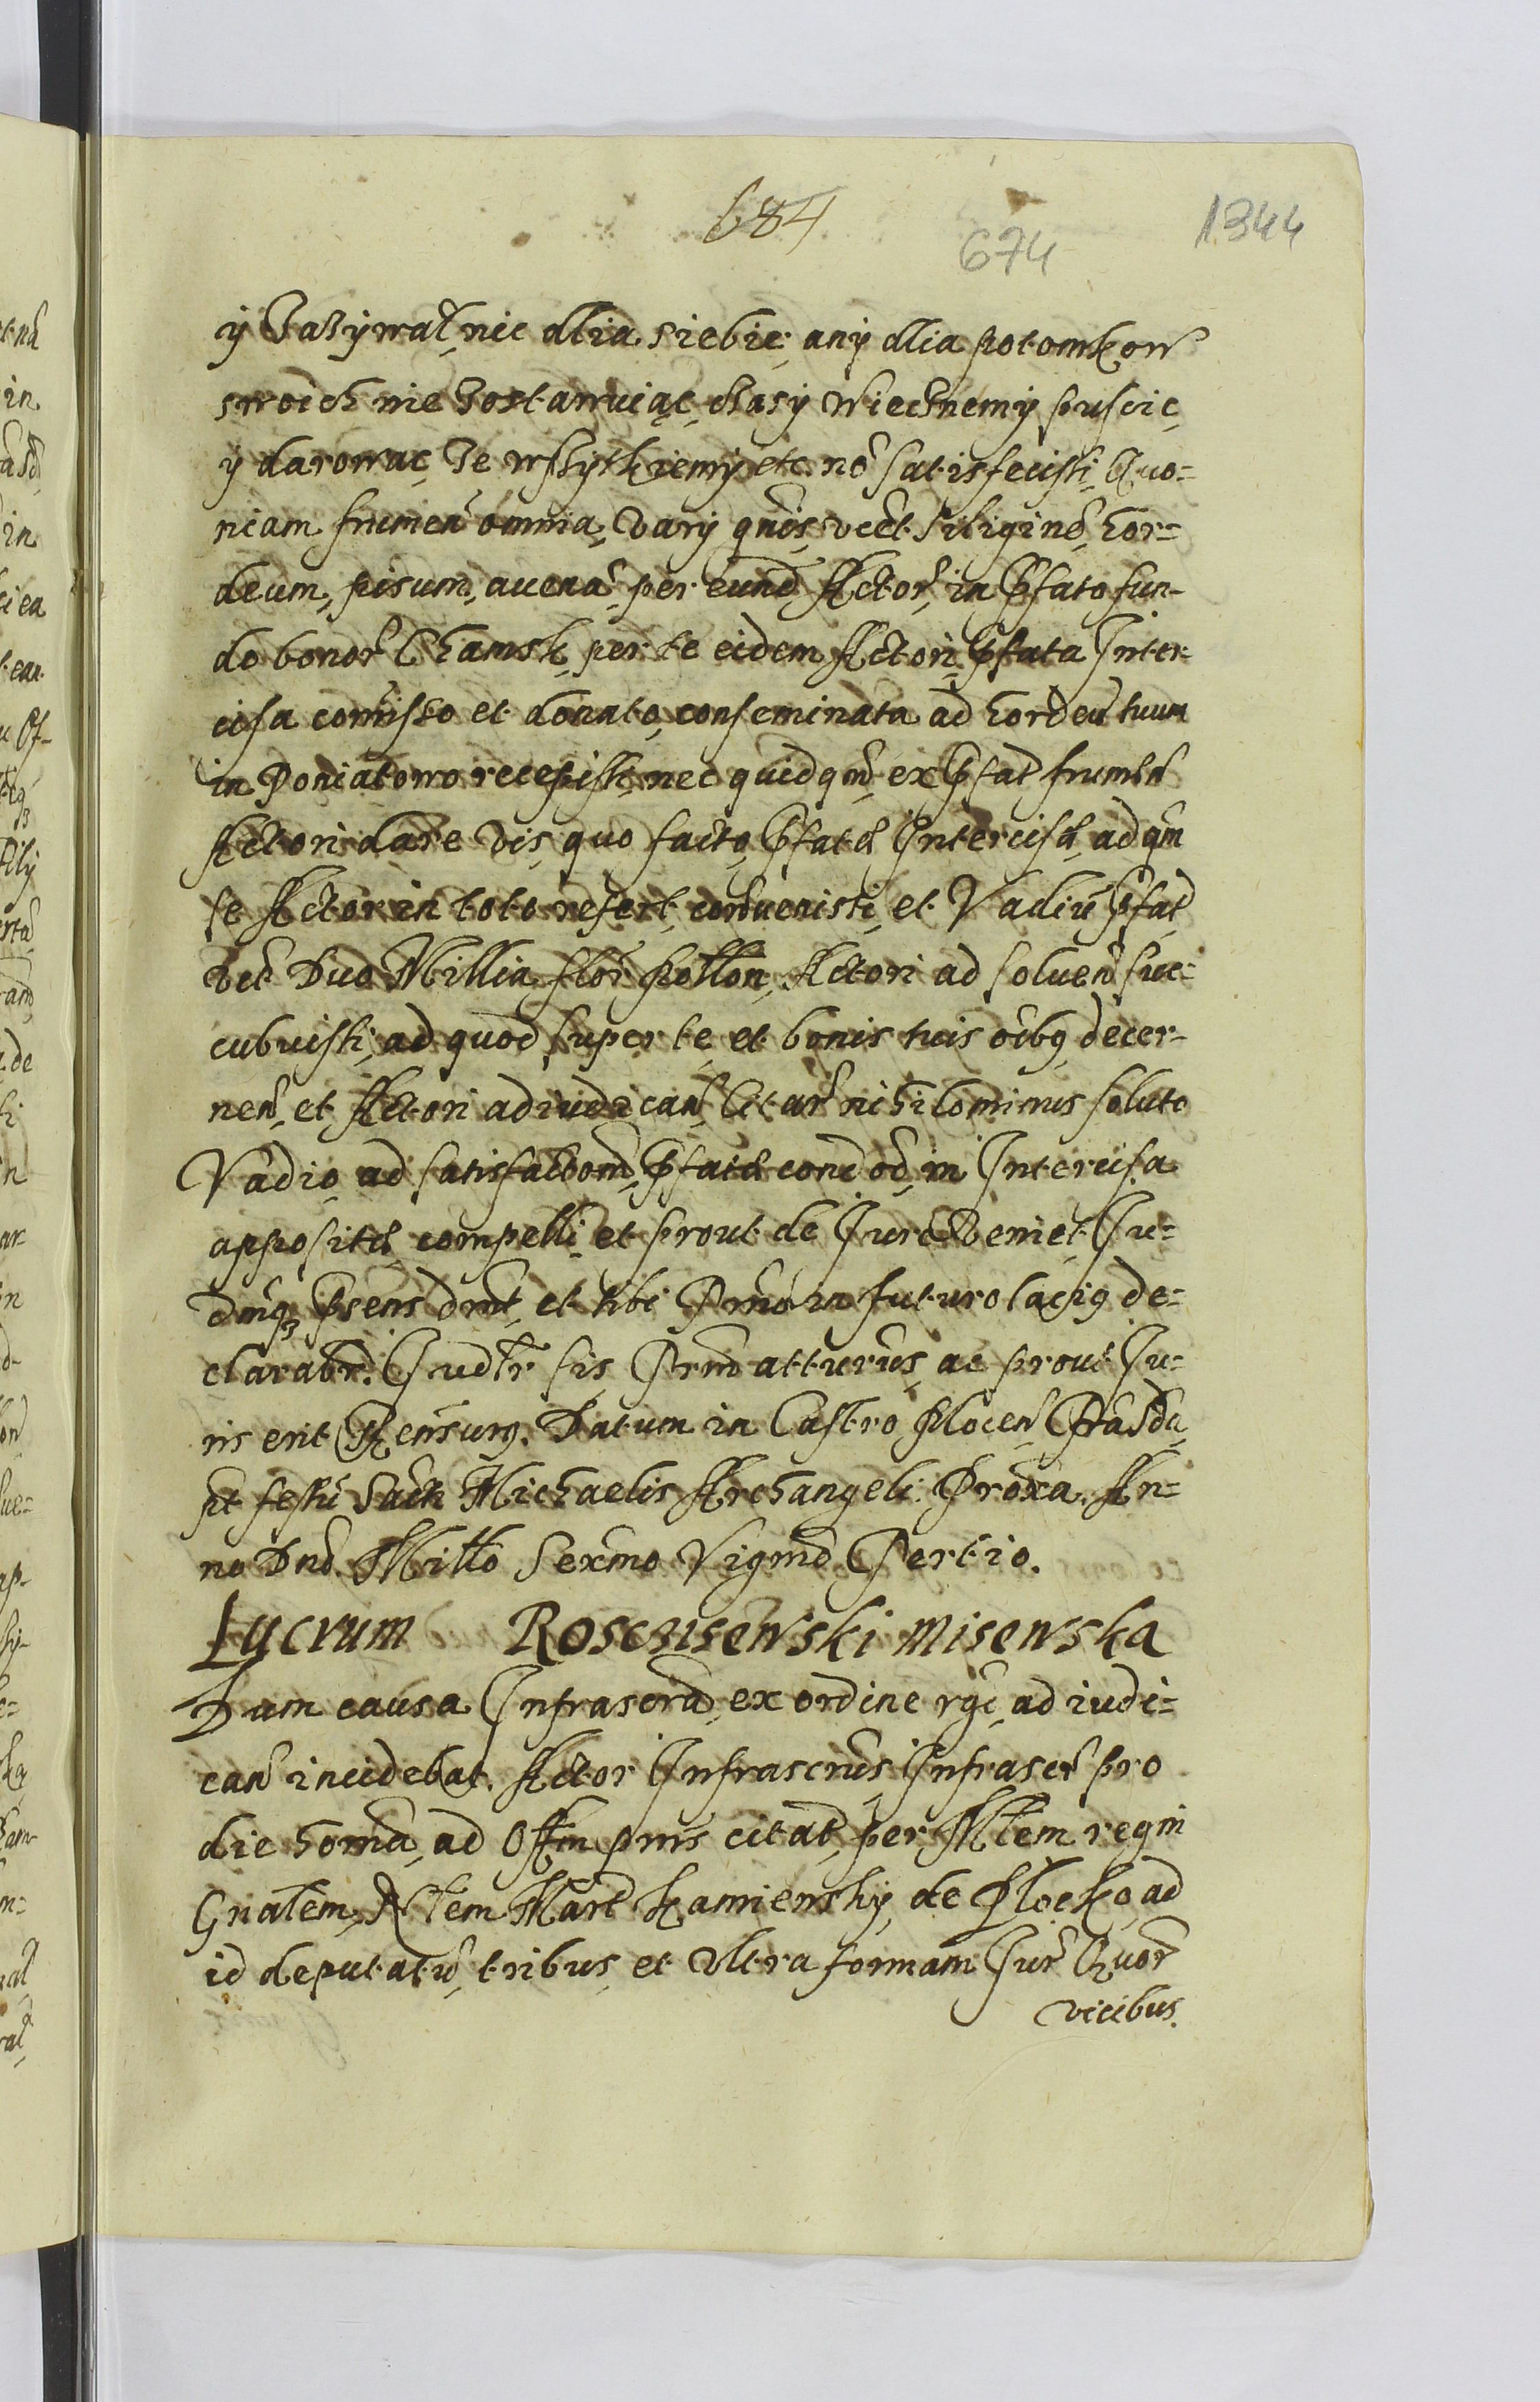 684
674
1344
ÿ zazÿwał, nic dlia siebie, anÿ dlia potomkow
swoich nie zostawuiąc, czasÿ wiecznemÿ puscic,
ÿ darowac, ze wszÿtkiemÿ etc. nō satisfecisti, Quo-
niam frumen̄ omnia, varÿ gn̄is, vc̄t siliginē, hor-
deum, pisum, avenā, per eund̄ Actor̄, in p̄fato fun-
do bonor̄ Chamsk, per te eidem Actori, p̄fata Inter-
cisa com̄isso et donato, conseminata ad hordeū tuum
in Poniatowo recepisti, nec quidqm̄, ex p̄fat̄ frumtn̄
Actori dare vis, quo facto, p̄fatæ Intercisæ, ad qm̄
se Actor in toto refert, contravenisti, et Vadiū p̄fat̄
vct̄ Duo Millia flor̄ pollon, Actori ad soluen̄ suc-
cubuisti, ad quod super te, et bonis tuis ōibꝫ, decer-
nen̄, et Actori adiudican̄ Citar̄ nihilominus soluto
Vadio, ad satisfactōm, p̄fatæ condōē, in Intercisa
appositæ compelli, et prout de Iure veniet, Iu-
dm̄qꝫ p̄sens dn̄t, et tibi Prm̄o in futuro lacius de-
clarabr̄. Iudr̄ sis, Trm̄o atturus, ac prout Iu-
ris erit Rensurꝫ. Datum in Castro Plocen̄,
pt festū Sancti Michaelis Archangeli Proxa. An-
no Dn̄o. Millo Sexm̄o Vigmo Tertio.
Lucrum Rosciszewski Misewska
Dum causa Infrascra, ex ordine rgī, ad iudi-
can̄ incidebat. Actor Infrascrūs, Infrascr̄ pro
die horna, ad Offm pn̄is citat̄, per Mlem regni
Gnalem, Mart Kamienskÿ, de Plocko, ad
id deputatū, tribus, et ultra formam Iur̄ Quor̄
vicibus.